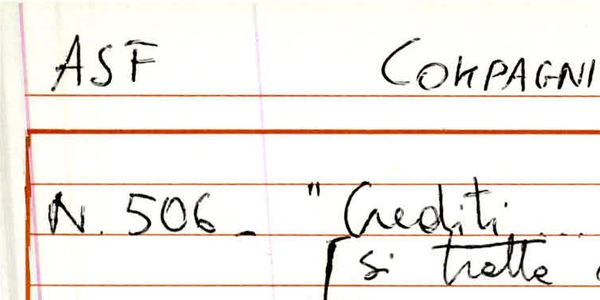 ASF COMPAGNI
N. 506_ "Crediti....
[si tratta